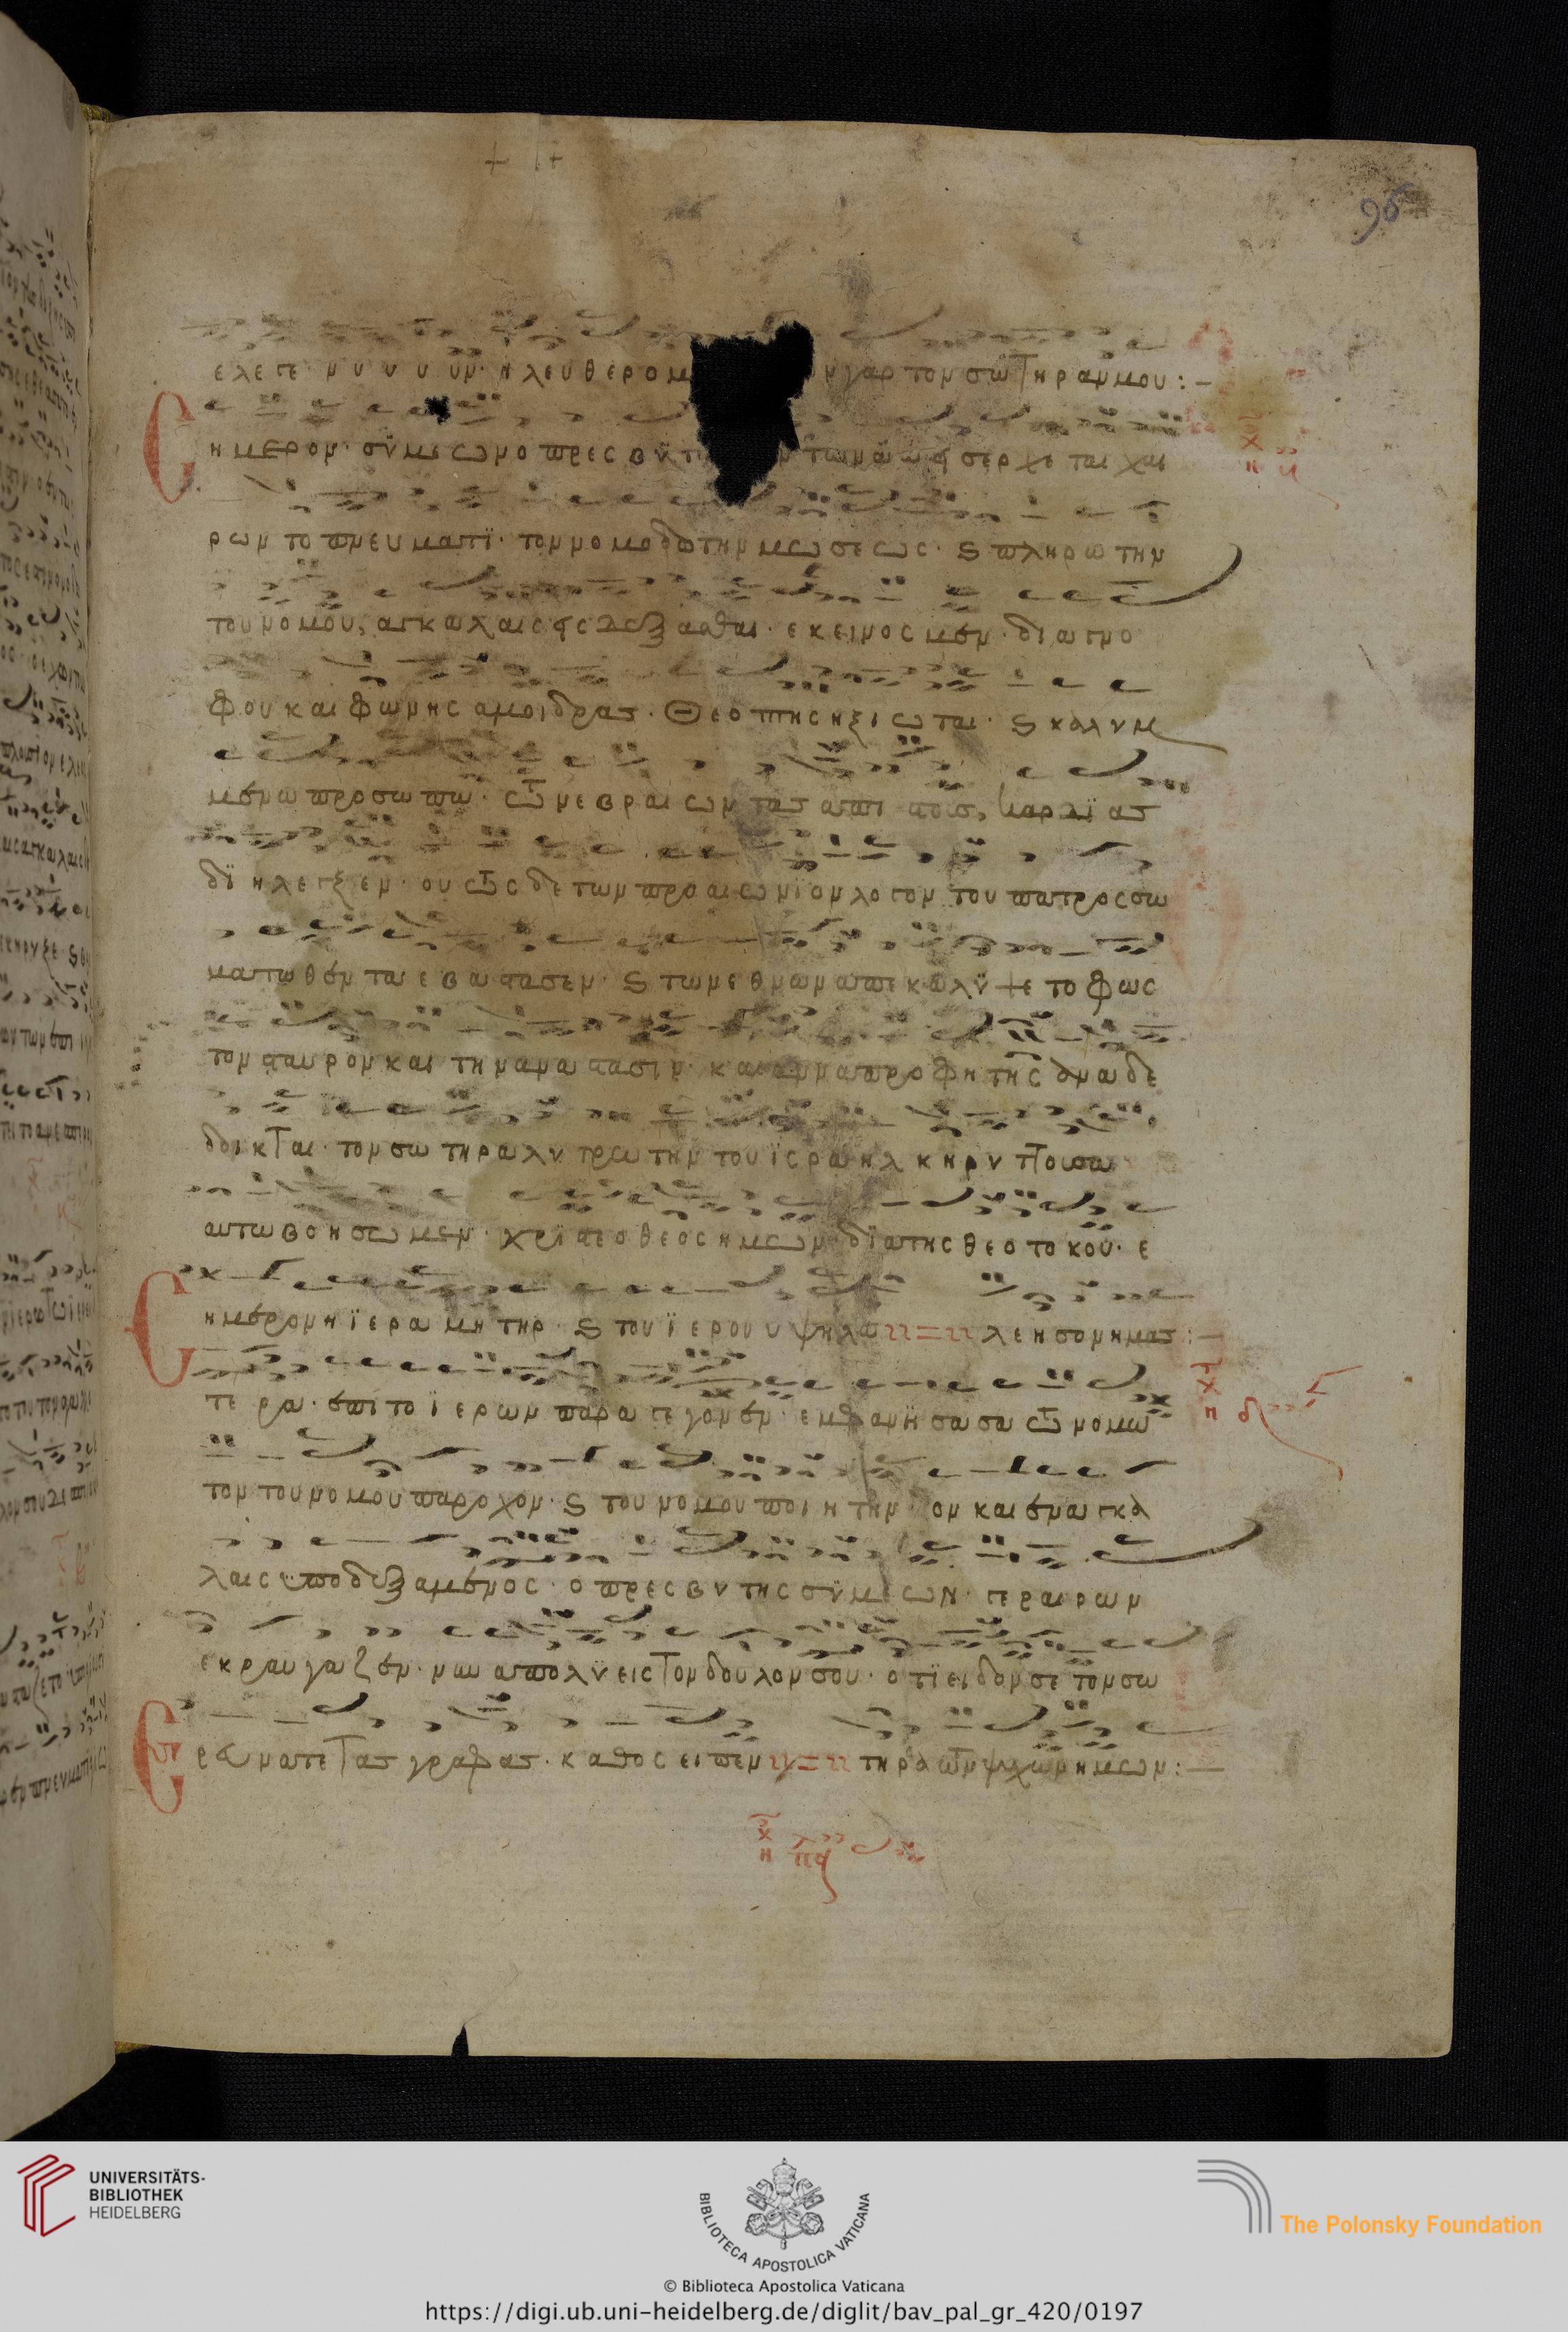 96
ελεγε νυ υ υ υν· ηλευθερομ γαρ τον σωτηρα μου :-
ημερον· συμεων ο πρεσβυτ τω ναω εισερχεται χαι
ρων τω πνευματι· τον νομοδοτην μωσεως· ϗ πληρωτην
του νομου, αγκαλαις εισδεξασθαι· εκεινος μεν· δια γνο
φου και φωνης αμυδρας· θεοπτης ηξιωται· ϗ κεκαλυμ
μενω προσωπω· των εβραιων τας απι καρδιας
διηλεγξεν· ουτος δε τον προαιωνιον λογον του πατρος σω
ματωθεντα εβαστασεν· ϗ των εθνων απεκαλυψε το φως
τον σταυρον και την αναστασιν· και αννα προφητης αναδε
δεικται· τον σωτηρα λυτρωτην του ισραηλ κηρυττουσα
αυτω βοησωμεν· χριστε ο θεος ημων δια της θεοτοκου· ε
ημερον η ιερα μητηρ· ϗ του ιερου υψηλο λεησον ημας :-
τερα· επι το ιερον παραγεγονεν· εμφανησασα τω νομω
τον του νομου παροχον· ϗ του νομου ποιητην· ον και εν αγκα
λαις υποδεξαμενος· ο πρεσβυτης συμεων· γεραιρων
εκραυγαζεν· νυν απολυεις τον δουλον σου· οτι ειδον σε τον σω
ρευνατε τας γραφας· καθως ειπεν τηρα των ψυχων ημων :-
UNIVERSITÄTS-
BIBLIOTHEK
HEIDELBERG
BIBLIOTECA APOSTOLICA VATICANA
The Polonsky Foundation
© Biblioteca Apostolica Vaticana
https://digi.ub.uni-heidelberg.de/diglit/bav_pal_gr_420/0197